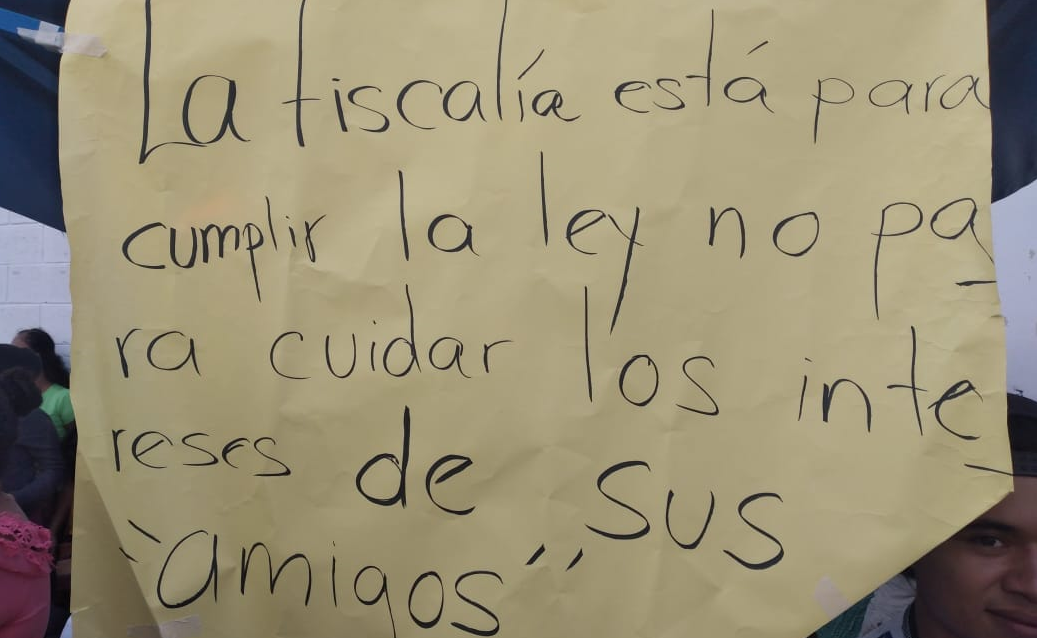 La fiscalía está para
cumplir la ley no pa_
ra cuidar los inte_
reses de sus
"amigos"